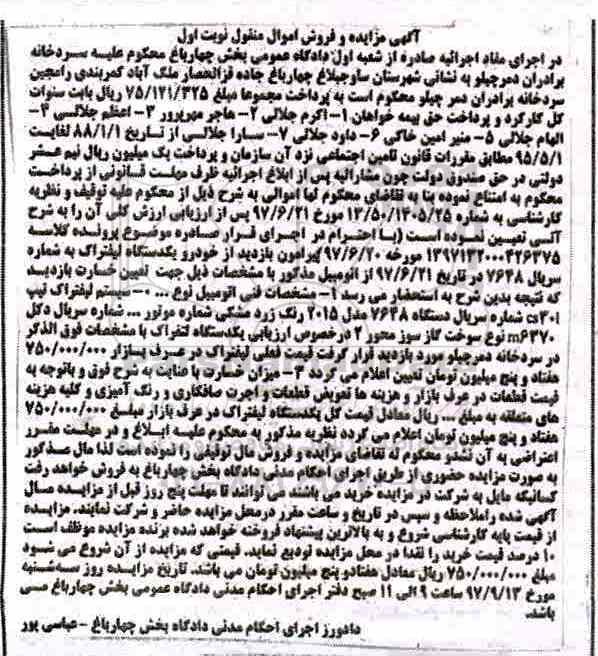 آگهی مزایده و فروش اموال منقول نوبت اول
در اجرای مفاد اجرائیه صادره از شعبه اول دادگاه عمومی بخش چهارباغ محکوم علیه سردخانه
برادران دمرچیلو به نشانی شهرستان ساوجبلاغ چهارباغ جاده قزلحصار ملک آباد کمربندی رامجین
سردخانه برادران دمر چیلو محکوم است به پرداخت مجموعا مبلغ ۷۵/۱۲۱/۳۲۵ ریال بابت سنوات
کل کارکرد و پرداخت حق بیمه خواهان ۱- اکرم جلالی ۲- هاجر مهرپرور ۳- اعظم جلالی ۴-
الهام جلالی ۵- منیر امین خاکی ۶- داود جلالی ۷- سارا جلالی از تاریخ ۸۸/۱/۱ لغایت
۹۵/۵/۱ مطابق مقررات قانون تامین اجتماعی نزد آن سازمان و پرداخت یک میلیون ریال نیم عشر
دولتی در حق صندوق دولت چون مشارالیه پس از ابلاغ اجرائیه ظرف مهلت قانونی از پرداخت
محکوم به امتناع نموده بنا به تقاضای محکوم لها اموالی به شرح ذیل از محکوم علیه توقیف و نظریه
کارشناسی به شماره ۱۳/۵۰/۱۴۰۵/۲۵ مورخ ۹۷/۶/۲۱ پس از ارزیابی ارزش کلی آن را به شرح
آتی تعیین نموده است (با احترام در اجرای قرار صادره موضوع پرونده کلاسه
۱۳۹۷۱۳۲۰۰۰۴۲۶۳۷۵ مورخه ۹۷/۶/۲۰ پیرامون بازدید از خودرو یکدستگاه لیفتراک به شماره
سریال ۷۶۴۸ در تاریخ ۹۷/۶/۲۱ از اتومبیل مذکور با مشخصات ذیل جهت تعیین خسارت بازدید
که نتیجه بدین شرح به استحضار می رسد ۱- مشخصات فنی اتومبیل نوع ... ۰-سیستم لیفتراک تیپ
cs۳۰i شماره سریال دستگاه ۷۶۴۸ مدل ۲۰۱۵ رنگ زرد مشکی شماره موتور ... شماره سریال دکل
m۶۳۷۰ نوع سوخت گاز سوز محور ۲ درخصوص ارزیابی یکدستگاه لتفراک با مشخصات فوق الذکر
در سردخانه دمرچیلو مورد بازدید قرار گرفت قیمت فعلی لیفتراک در عرف بازار ۷۵۰/۰۰۰/۰۰۰
هفتاد و پنج میلیون تومان تعیین اعلام می گردد ۳- میزان خسارت با عنایت به شرح فوق و باتوجه به
قیمت قطعات در عرف بازار و هزینه ها تعویض قطعات و اجرت صافکاری و رنگ آمیزی و کلیه هزینه
های متعلقه به مبلغ ... ریال معادل قیمت کل یکدستگاه لیفتراک در عرف بازار مبلغ ۷۵۰/۰۰۰/۰۰۰
هفتاد و پنج میلیون تومان اعلام می گردد نظریه مذکور به محکوم علیه ابلاغ و در مهلت مقرر
اعتراضی به آن نشدو محکوم له تقاضای مزایده و فروش مال توقیفی را نموده است لذا مال مذکور
به صورت مزایده حضوری از طریق اجرای احکام مدنی دادگاه بخش چهارباغ به فروش خواهد رفت
کسانیکه مایل به شرکت در مزایده خرید می باشند می توانند تا مهلت پنج روز قبل از مزایده مال
آگهی شده راملاحظه و سپس در تاریخ و ساعت مقرر درمحل مزایده حاضر و شرکت نمایند. مزایده
از قیمت پایه کارشناسی شروع و به بالاترین پیشنهاد فروخته خواهد شده برنده مزایده موظف است
۱۰ درصد قیمت خرید را نقدا در محل مزایده تودیع نماید. قیمتی که مزایده از آن شروع می شود
مبلغ ۷۵۰/۰۰۰/۰۰۰ ریال معادل هفتادو پنج میلیون تومان می باشد. تاریخ مزایده روز سه‌شنبه
مورخ ۹۷/۹/۱۳ ساعت ۹ الی ۱۱ صبح دفتر اجرای احکام مدنی دادگاه عمومی بخش چهارباغ می
باشد.
دادورز اجرای احکام مدنی دادگاه بخش چهارباغ - عباسی پور